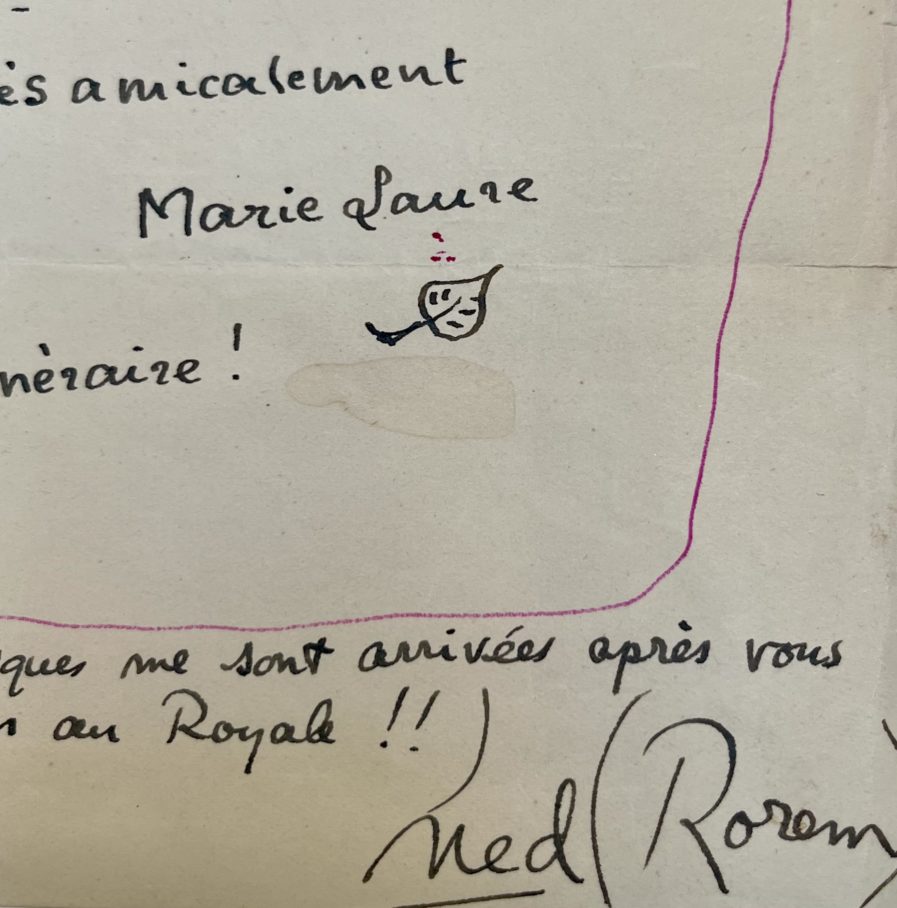 ès amicalement
Marie Laure
nèraire !
ques me sont arrivées après vous
au Royale !!)
Ned (Rorem)